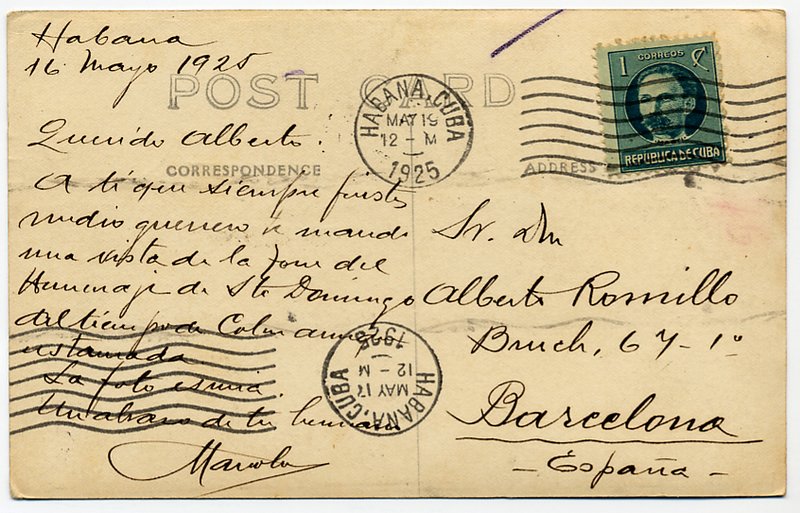 Habana
16 Mayo 1925
POST CARD
Querido Alberto:
CORRESPONDENCE
A ti que siempre fuistes
medio guerrero te mando
una vista de la Torre del
Homenaje de Sto Domingo
del tiempo de Colon
La foto es mia.
Un abrazo de tu hermano
Manolo
HABANA, CUBA
MAY 19
12 - M
1925
1 CORREOS C
REPUBLICA DE CUBA
ADDRESS
Sr. Dn
Alberto Romillo
Bruch, 67-1º
Barcelona
- España -
HABANA, CUBA
MAY 17
12 - M
1925